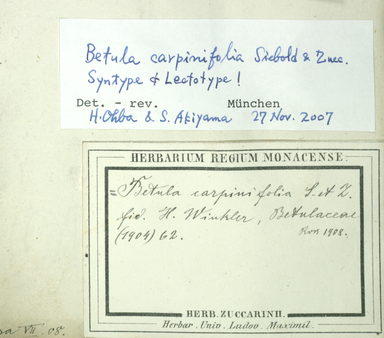 Betula carpinifolia Siebold & Zucc.
Syntype & Lectotype !
Det. - rev. München
H. Ohba & S. Akiyama 27 Nov. 2007
HERBARIUM REGIUM MONACENSE.
=Betula carpinifolia S. et Z.
fid. H. Winkler, Betulaceae
(1904) 62. Ross 1908.
HERB. ZUCCARINII.
Herbar. Univ. Ludov. Maximil.
VII. 08.